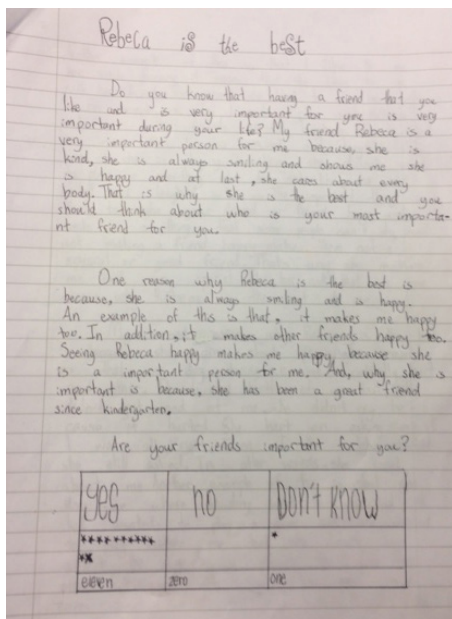 Rebeca is the best
Do you know that having a friend that you
like and is very important for you is very
important during your life? My friend Rebeca is a
very important person for me because, she is
kind, she is always smiling and shows me she
is happy and at last, she cares about every
body. That is why she is the best and you
should think about who is your most importa-
nt friend for you.
One reason why Rebeca is the best is
because, she is always smiling and is happy.
An example of this is that, it makes me happy
too. In addition, it makes other friends happy too.
Seeing Rebeca happy makes me happy, because she
is a important person for me. And, why she is
important is because, she has been a great friend
since kindergarten.
Are your friends important for you?
yes no Don't know
********** *
*x
eleven zero one